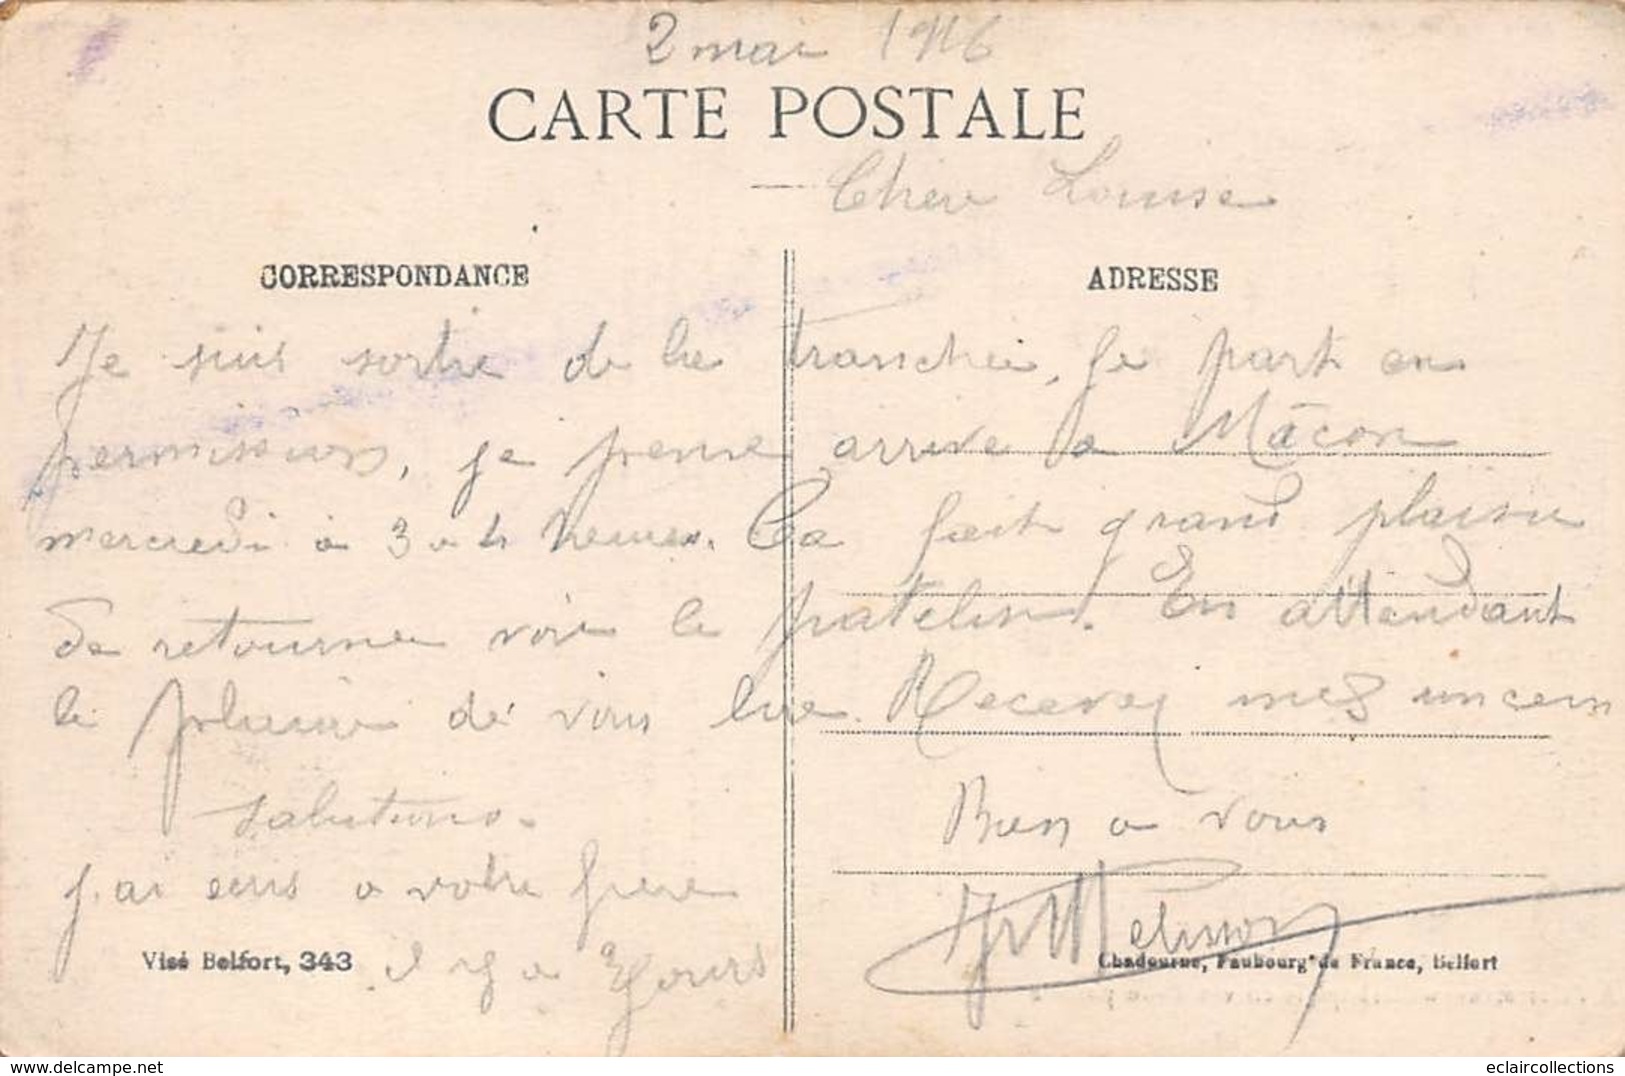 2 mai 1916
CARTE POSTALE
Cher Louise
CORRESPONDANCE
ADRESSE
Je suis sortie de la tranchée, je part en
permission, je pense arrive a Mâcon
mercredi a 3 a 4 heures. Ca fait grand plaisir
de retourner voir le patelin. En attendant
le plaisir de vous lire. Recevez mes sincères
salutations.
Bien a vous
j'ai ecris a votre frere
il y a 3 jours
Pelisson
Visé Belfort, 343
Chadourne, Faubourg de France, Belfort
delcampe.net
eclaircollections